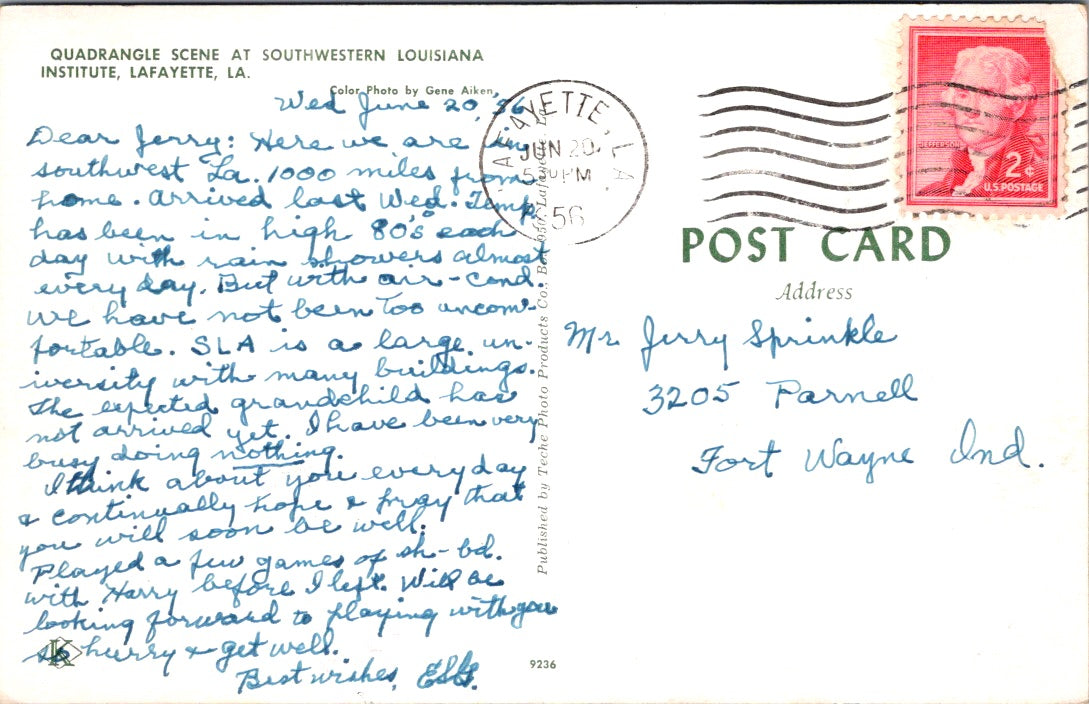 QUADRANGLE SCENE AT SOUTHWESTERN LOUISIANA
INSTITUTE, LAFAYETTE, LA.
Color Photo by Gene Aiken
Wed June 20, '56
Dear Jerry: Here we are in
southwest La. 1000 miles from
home. Arrived last Wed. Temp.
has been in high 80's each
day with rain showers almost
every day. But with air-cond.
we have not been too uncom-
fortable. SLA is a large un-
iversity with many buildings.
The expected grandchild has
not arrived yet. I have been very
busy doing nothing.
I think about you everyday
& continually hope & pray that
you will soon be well.
Played a few games of sh-bd.
with Harry before I left. Will be
looking forward to playing with you
so hurry & get well.
Best wishes,
K
9236
Published by Teche Photo Products Co., Box Lafayette, La.
LAFAYETTE, LA.
JUN 20
PM
56
JEFFERSON
2¢
U.S. POSTAGE
POST CARD
Address
Mr Jerry Sprinkle
3205 Parnell
Fort Wayne Ind.